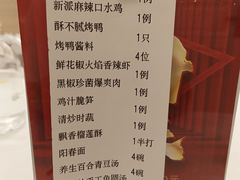 新派麻辣口水鸡 1例
酥不腻烤鸭 1只
烤鸭酱料 4位
鲜花椒火焰香辣虾 1例
黑椒珍菌爆爽肉 1例
鸡汁脆笋 1例
清炒时蔬 1例
飘香榴莲酥 1半打
阳春面 4碗
养生百合青豆汤 4碗